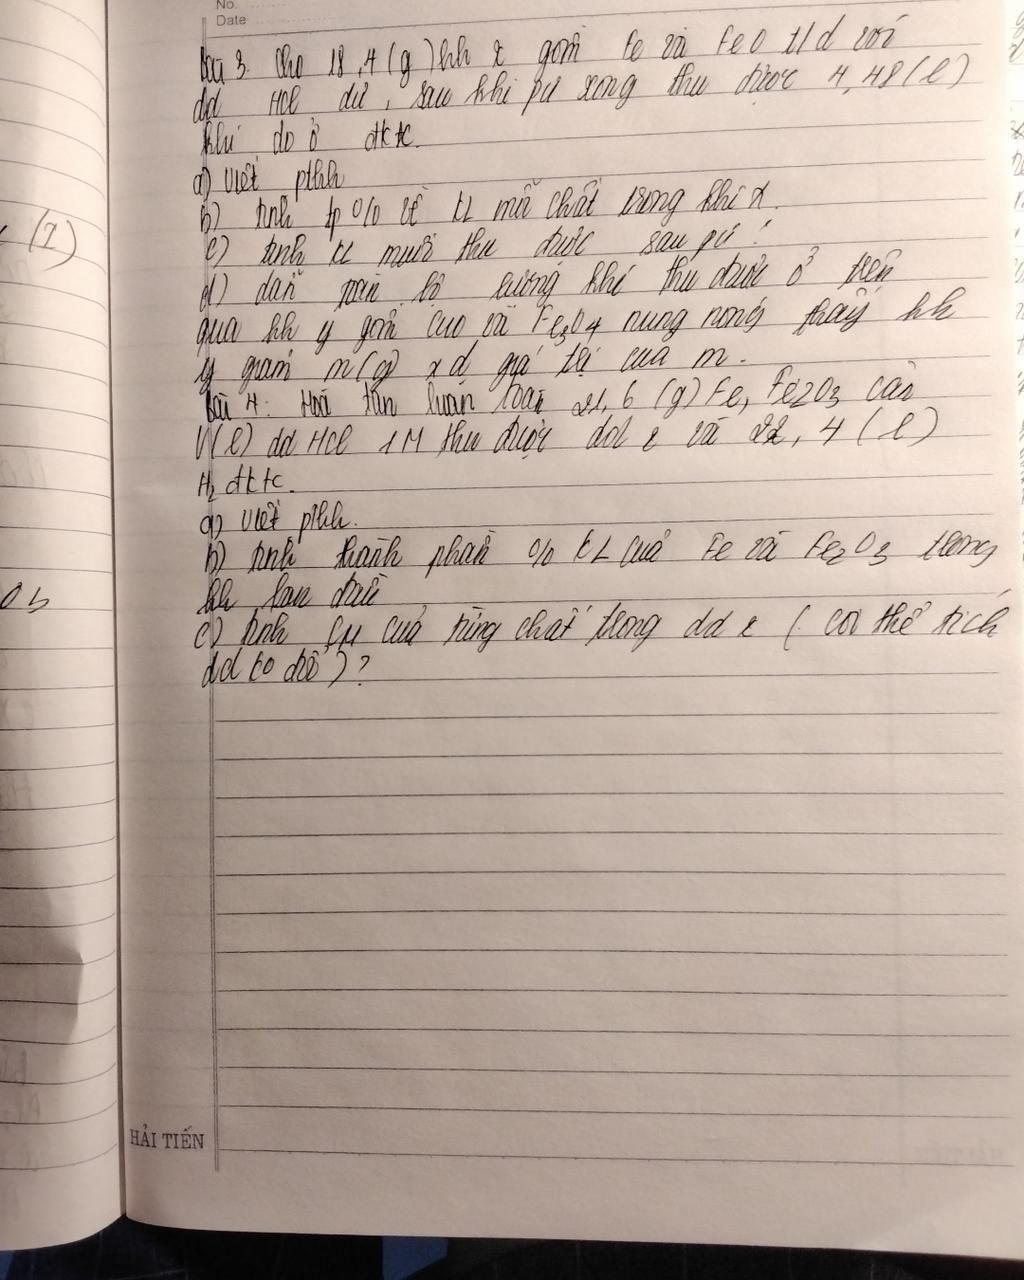 No.
Date
Bài 3. Cho 18,4(g) hh x gồm Fe và FeO t/d với
dd HCl dư, sau khi pư xong thu được 4,48(l)
khí đo ở đktc.
a) viết pthh
b) tính tp % về KL mỗi chất trong khí x.
c) tính KL muối thu được sau pư?
d) dẫn toàn bộ lượng khí thu được ở trên
qua hh y gồm CuO và Fe3O4 nung nóng thấy hh
y giảm m(g) xđ giá trị của m.
Bài 4: Hoà tan hoàn toàn 21,6 (g) Fe, Fe2O3 cần
V(l) dd HCl 1M thu được dd x và 22,4 (l)
H2 đktc.
a) viết pthh.
b) tính thành phần % KL của Fe và Fe2O3 trong
hh ban đầu
c) tính CM của từng chất trong dd x (coi thể tích
dd ko đổi)?
(1)
O3
HẢI TIẾN